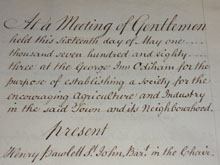 At a Meeting of Gentlemen
held this Sixteenth day of May one
thousand seven hundred and eighty-
three at the George Inn Odiham for the
purpose of establishing a Society for the
encouraging Agriculture and Industry
in the said Town and its Neighbourhood.
Present
Henry Pawlett St. John, Bart. in the Chair